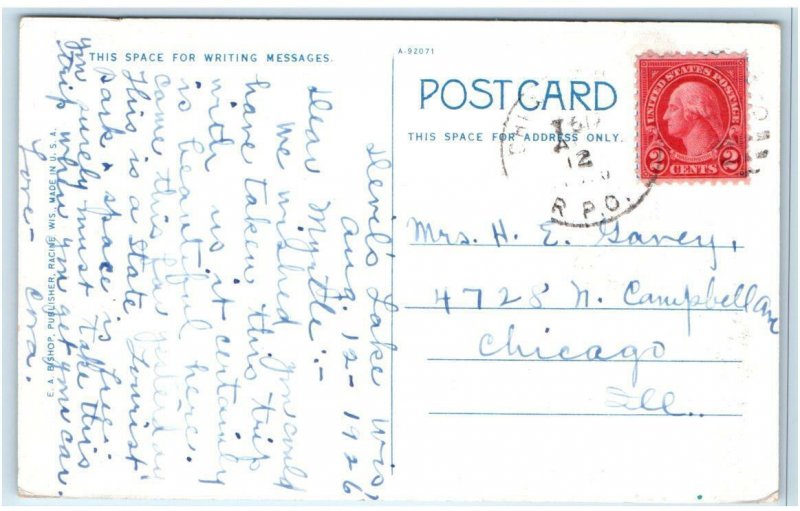 THIS SPACE FOR WRITING MESSAGES.
A-92071
POSTCARD
THIS SPACE FOR ADDRESS ONLY.
UNITED STATES POSTAGE
2 CENTS 2
CHI
A
12
R.P.O.
Devil's Lake Wis.
Aug. 12 - 1926
Dear Myrtle:-
We wished you could
have taken this trip
with us it certainly
is beautiful here.
Came this far yesterday
This is a State Tourist
park & space is free.
You surely must take this
trip when you get your car.
Love - Cora.
E. A. BISHOP, PUBLISHER, RACINE WIS. MADE IN U.S.A.
Mrs. H. E. Garvey,
4728 N. Campbell Ave
Chicago
Ill.